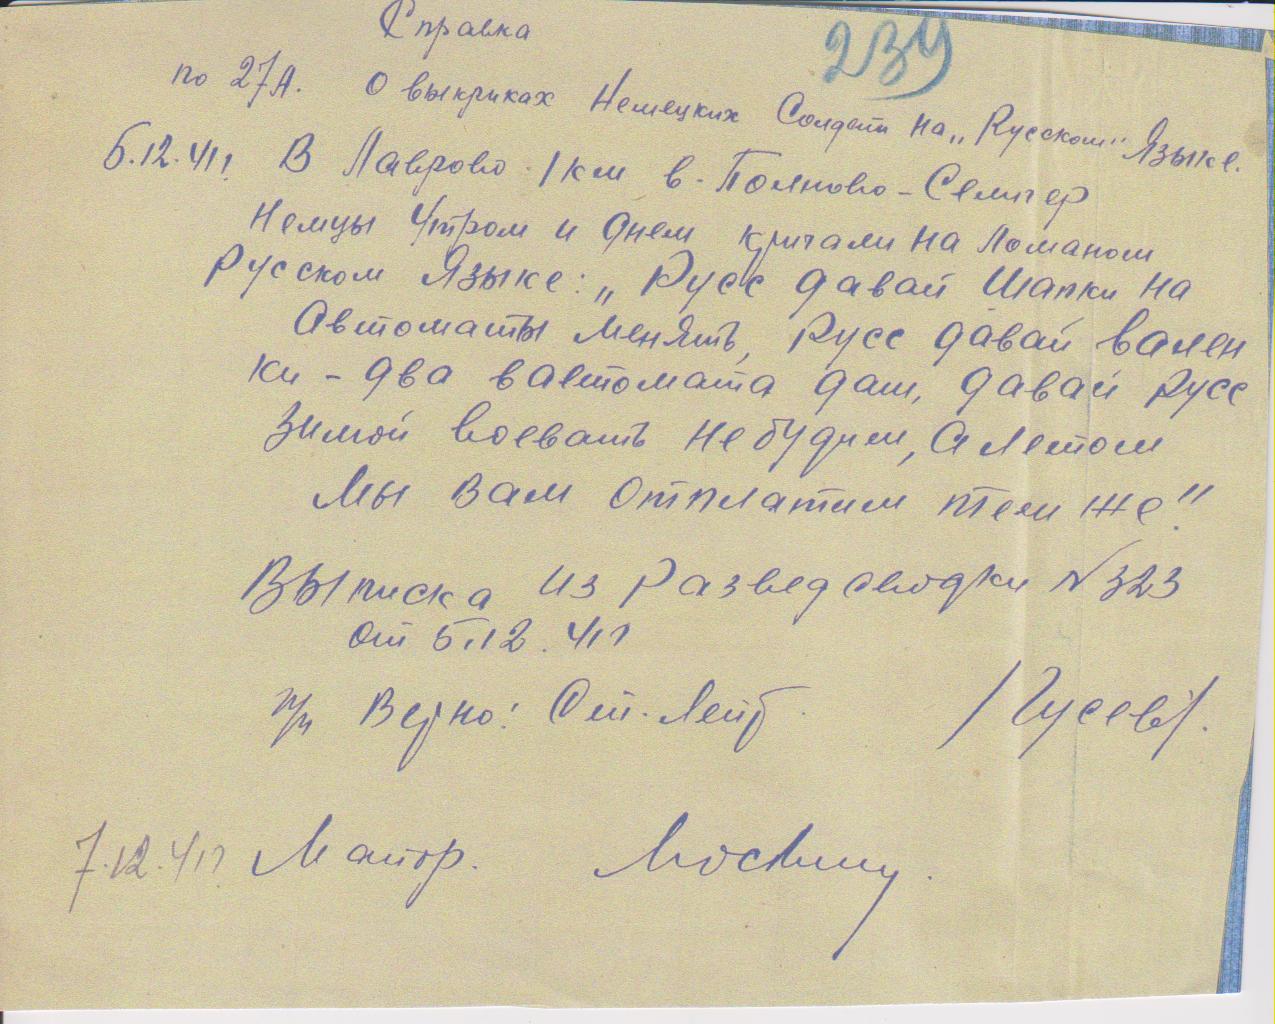 Справка
239
по 27А. О выкриках Немецких Солдат на „Русском" Языке.
5.12.41г. В Лаврово 1 км в. Полново-Селигер
Немцы Утром и днем кричали на ломаном
Русском Языке: „Русс давай Шапки на
Автоматы менять, Русс давай вален
ки – два автомата даш, давай Русс
Зимой воевать не будем, а летом
Мы вам отплатим тем же."
Выписка из Разведсводки №323
от 5.12.41г
п/п Верно: Ст. Лейт. /Гусев/.
7.12.41г Маиор.